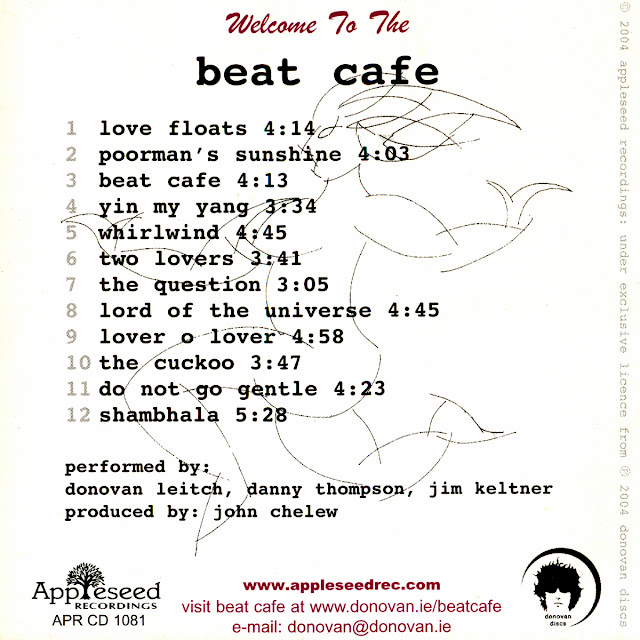 Welcome To The
beat cafe
1 love floats 4:14
2 poorman's sunshine 4:03
3 beat cafe 4:13
4 yin my yang 3:34
5 whirlwind 4:45
6 two lovers 3:41
7 the question 3:05
8 lord of the universe 4:45
9 lover o lover 4:58
10 the cuckoo 3:47
11 do not go gentle 4:23
12 shambhala 5:28
performed by:
donovan leitch, danny thompson, jim keltner
produced by: john chelew
Appleseed
RECORDINGS
APR CD 1081
www.appleseedrec.com
visit beat cafe at www.donovan.ie/beatcafe
e-mail: donovan@donovan.ie
donovan
discs
© 2004 appleseed recordings: under exclusive licence from ℗ 2004 donovan discs